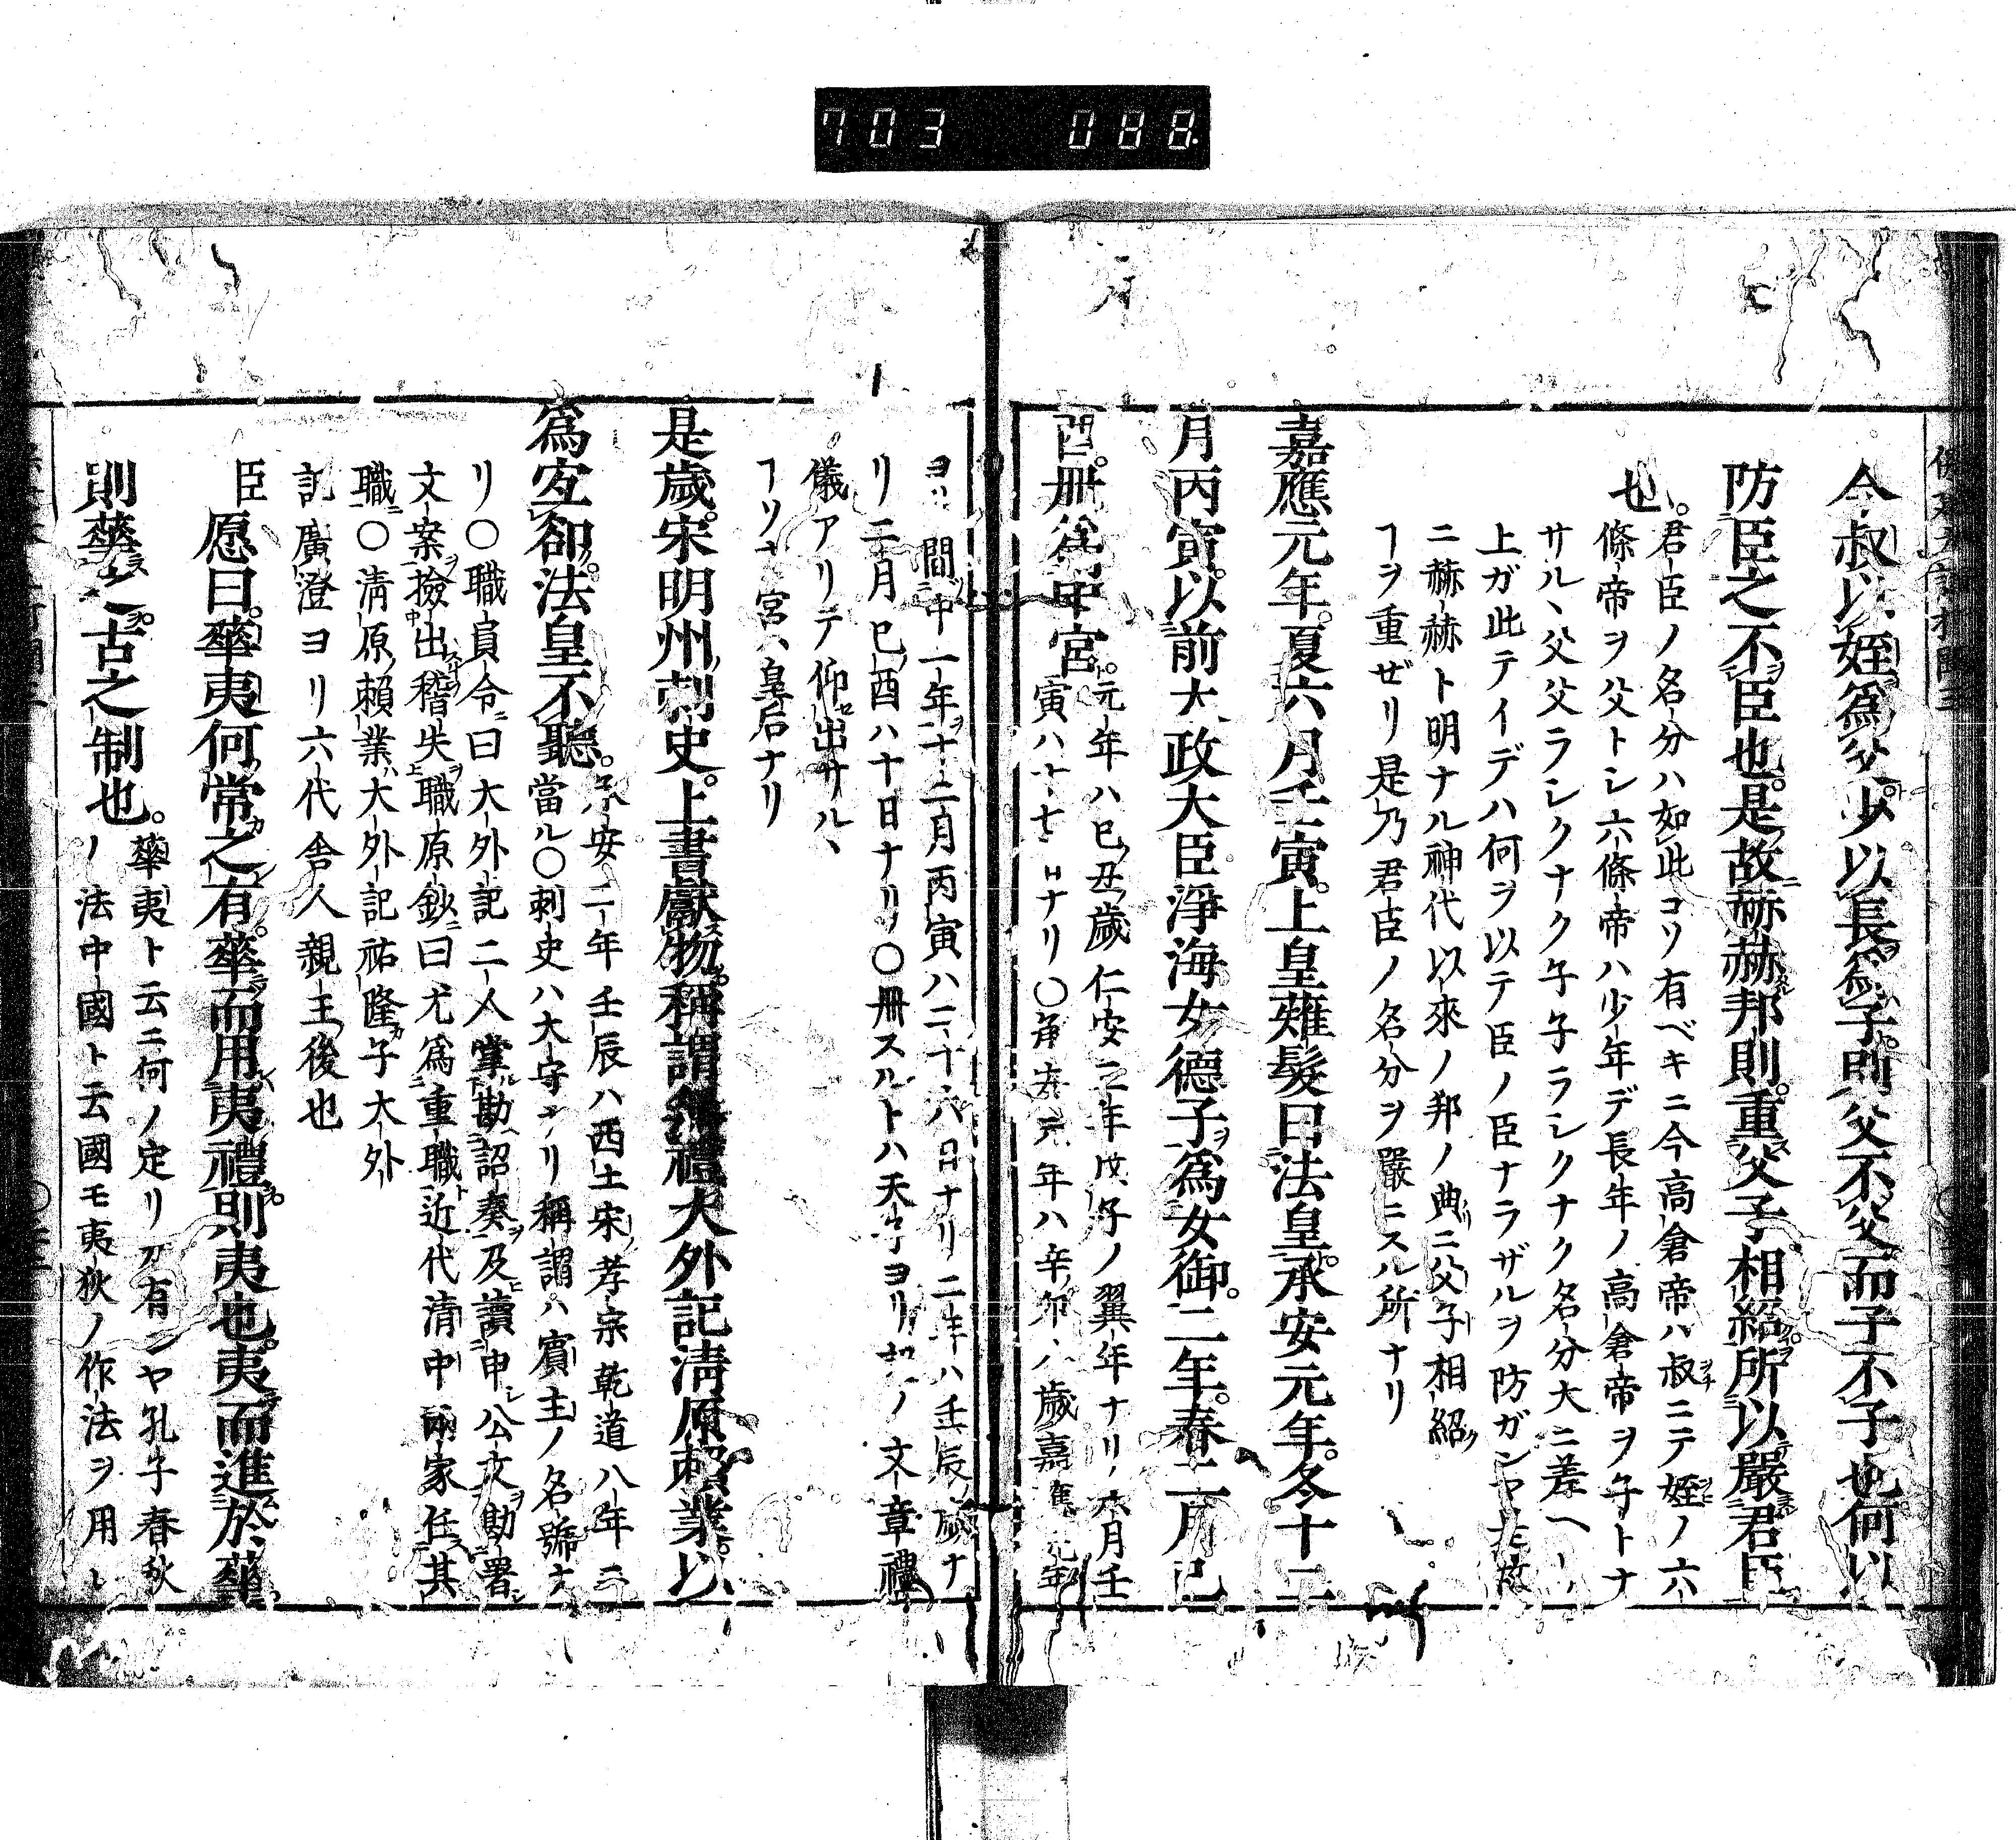 703 088
今叔以姪爲父少以長爲子則父不父而子不子也何以
防臣之不臣也是故赫赫邦則重父子相紹所以嚴君臣
也
君臣ノ名分ハ如此コソ有ベキニ今高倉帝ハ叔ニテ姪ノ六
條帝ヲ父トシ六條帝ハ少年デ長年ノ高倉帝ヲ子トナ
サルヽ父父ラシクナク子子ラシクナク名分大ニ差ヘリ
上ガ此テイデハ何ヲ以テ臣ノ臣ナラザルヲ防ガンヤ故
ニ赫赫ト明ナル神代以來ノ邦ノ典ニ父子相紹
ヿヲ重ゼリ是乃君臣ノ名分ヲ嚴ニスル所ナリ
嘉應元年夏六月壬寅上皇薙髮曰法皇承安元年冬十二
月丙寅以前太政大臣淨海女德子爲女御二年春二月己
酉册爲中宮
元年ハ己丑歲仁安三年戊子ノ翼年ナリ六月壬
寅ハ十七日ナリ〇承安元年ハ辛卯ノ歲嘉應元年
ヨリ間中一年十二月丙寅ハ二十六日ナリ二年ハ壬辰歲ナ
リ二月己酉ハ十日ナリ〇册スルトハ天子ヨリ ノ文章禮
儀アリテ仰出サルヽ
ヿソ中宮ハ皇后ナリ
是歲宋明州刺史上書獻物稱謂無禮大外記淸原賴業以
爲宜卻法皇不聽
承安二年壬辰ハ西土宋孝宗乾道八年ニ
當ル〇刺史ハ大守ナリ稱謂ハ賓主ノ名號ナ
リ〇職員令曰大外記二人掌勘詔奏及讀申公文勘署
文案撿出稽失職原鈔曰尤爲重職近代淸中兩家任其
職〇淸原賴業ハ大外記祐隆子大外
記廣澄ヨリ六代舍人親王後也
臣愿曰華夷何常之有華而用夷禮則夷也夷而進於華
則華之古之制也
華夷ト云ニ何ノ定リカ有ンヤ孔子春秋
ノ法中國ト云國モ夷狄ノ作法ヲ用レ